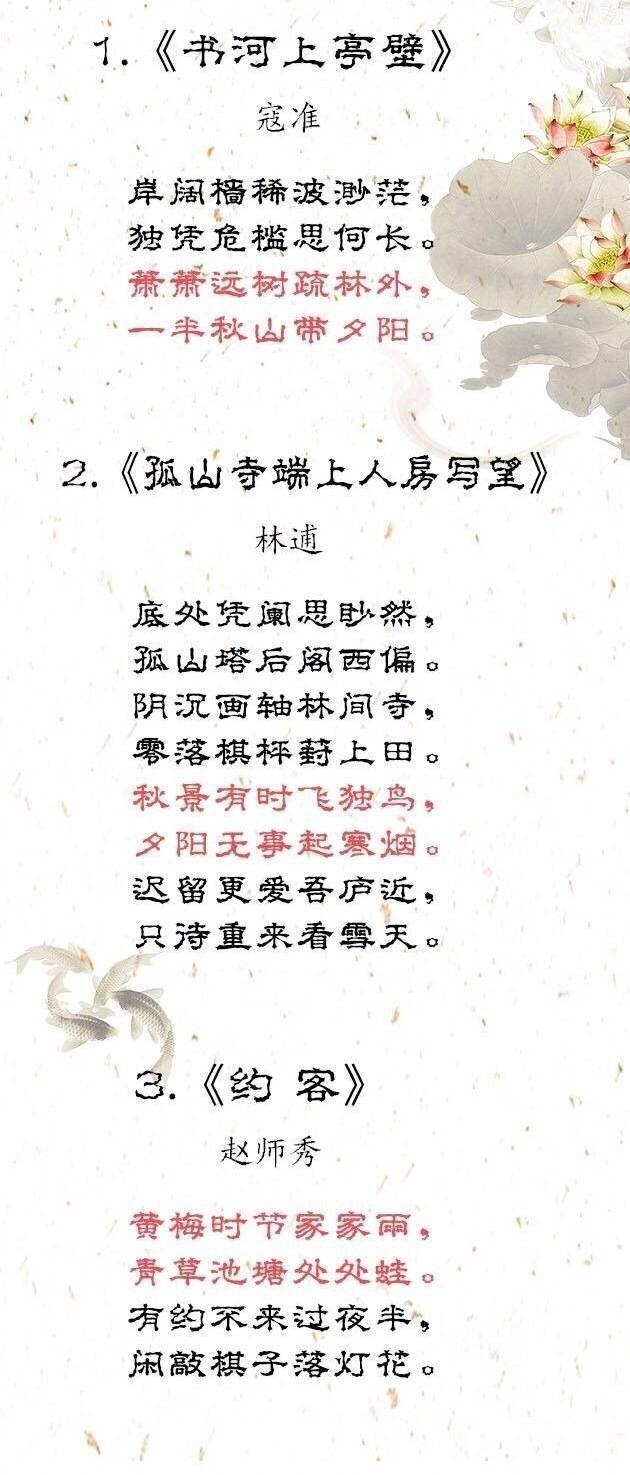 1.《书河上亭壁》
寇准
岸阔樯稀波渺茫，
独凭危槛思何长。
萧萧远树疏林外，
一半秋山带夕阳。
2.《孤山寺端上人房写望》
林逋
底处凭阑思眇然，
孤山塔后阁西偏。
阴沉画轴林间寺，
零落棋枰葑上田。
秋景有时飞独鸟，
夕阳无事起寒烟。
迟留更爱吾庐近，
只待重来看雪天。
3.《约 客》
赵师秀
黄梅时节家家雨，
青草池塘处处蛙。
有约不来过夜半，
闲敲棋子落灯花。